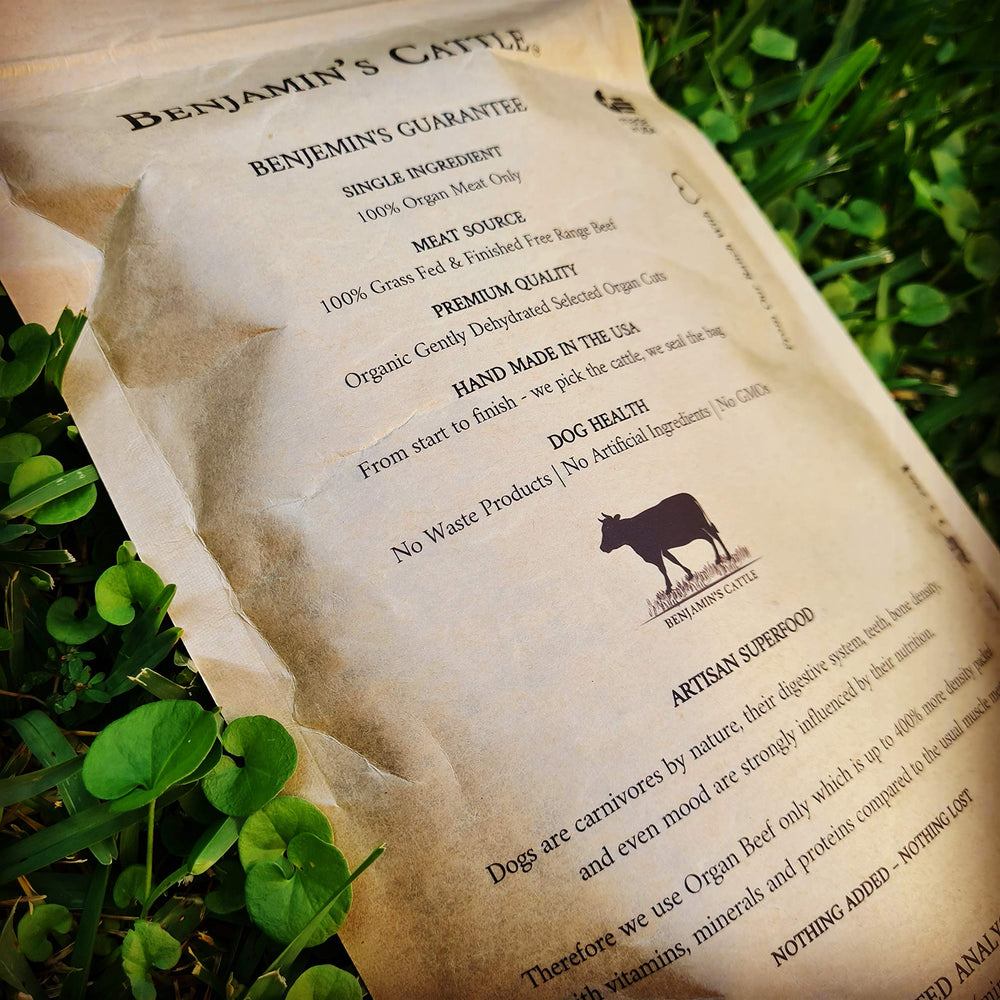 BENJAMIN'S CATTLE®
BENJEMIN'S GUARANTEE
SINGLE INGREDIENT
100% Organ Meat Only
MEAT SOURCE
100% Grass Fed & Finished Free Range Beef
PREMIUM QUALITY
Organic Gently Dehydrated Selected Organ Cuts
HAND MADE IN THE USA
From start to finish - we pick the cattle, we seal the bag
DOG HEALTH
No Waste Products | No Artificial Ingredients | No GMOs
BENJAMIN'S CATTLE
ARTISAN SUPERFOOD
Dogs are carnivores by nature, their digestive system, teeth, bone density
and even mood are strongly influenced by their nutrition.
Therefore we use Organ Beef only which is up to 400% more density packed
with vitamins, minerals and proteins compared to the usual muscle
NOTHING ADDED – NOTHING LOST